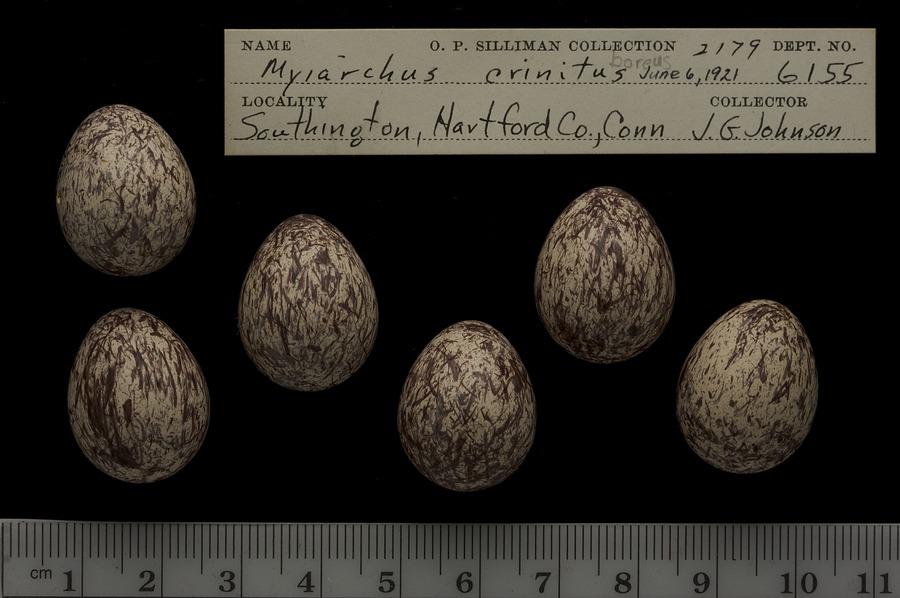 NAME O. P. SILLIMAN COLLECTION 2179 DEPT. NO.
boreus
Myiarchus crinitus June 6, 1921 6155
LOCALITY COLLECTOR
Southington, Hartford Co., Conn J. G. Johnson
cm 1 2 3 4 5 6 7 8 9 10 11